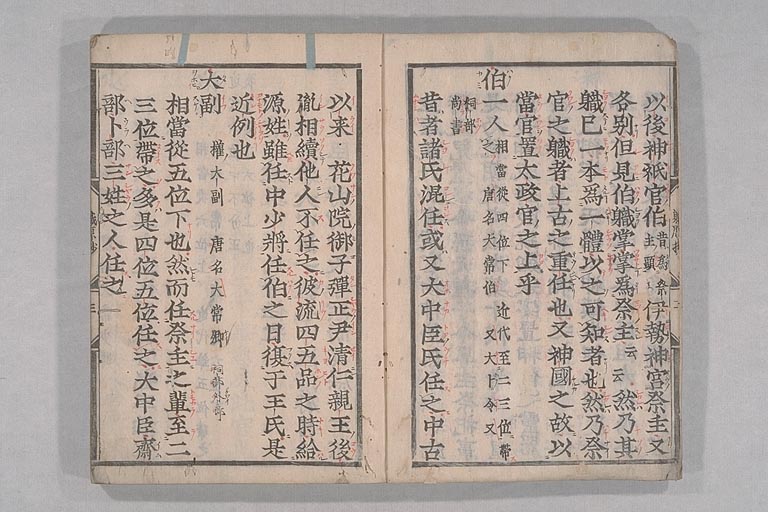 以後神祇官伯昔爲祭主顕伊勢神宮祭主又
各別但見伯軄掌掌爲祭主云云然乃其
軄已一本爲一體以之可知者也然乃祭
官之軄者上古之重任也又神國之故以
當官置太政官之上乎
伯一人相當從四位下近代至二三位帶之唐名大常伯又大卜令又祠部尚書
昔者諸氏混任或又大中臣氏任之中古
以来花山院御子彈正尹清仁親王後
胤相續他人不任之彼流四五品之時給
源姓雖任中少將任伯之日復于王氏是
近例也
大副權大副唐名大常卿祠部外郎
相當從五位下也然而任祭主之輩至二
三位帶之多是四位五位任之大中臣齋
部卜部三姓之人任之